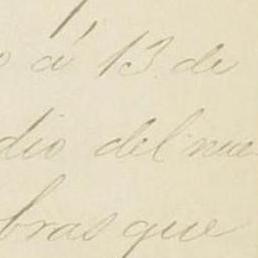 o á 13 de
dio del nue
bras que